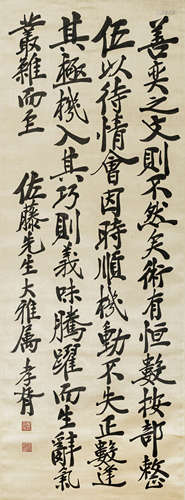 善奕之文則不然矣術有恒數按部整
伍以待情會因時順機動不失正數逢
其極機入其巧則義味騰躍而生辭氣
叢雜而至
佐藤先生大雅属 孝胥